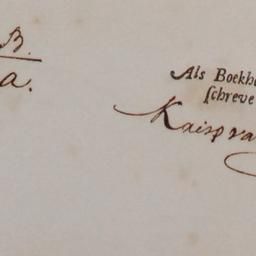 B.
a.
Als Boekho
schreve
Kaisp va